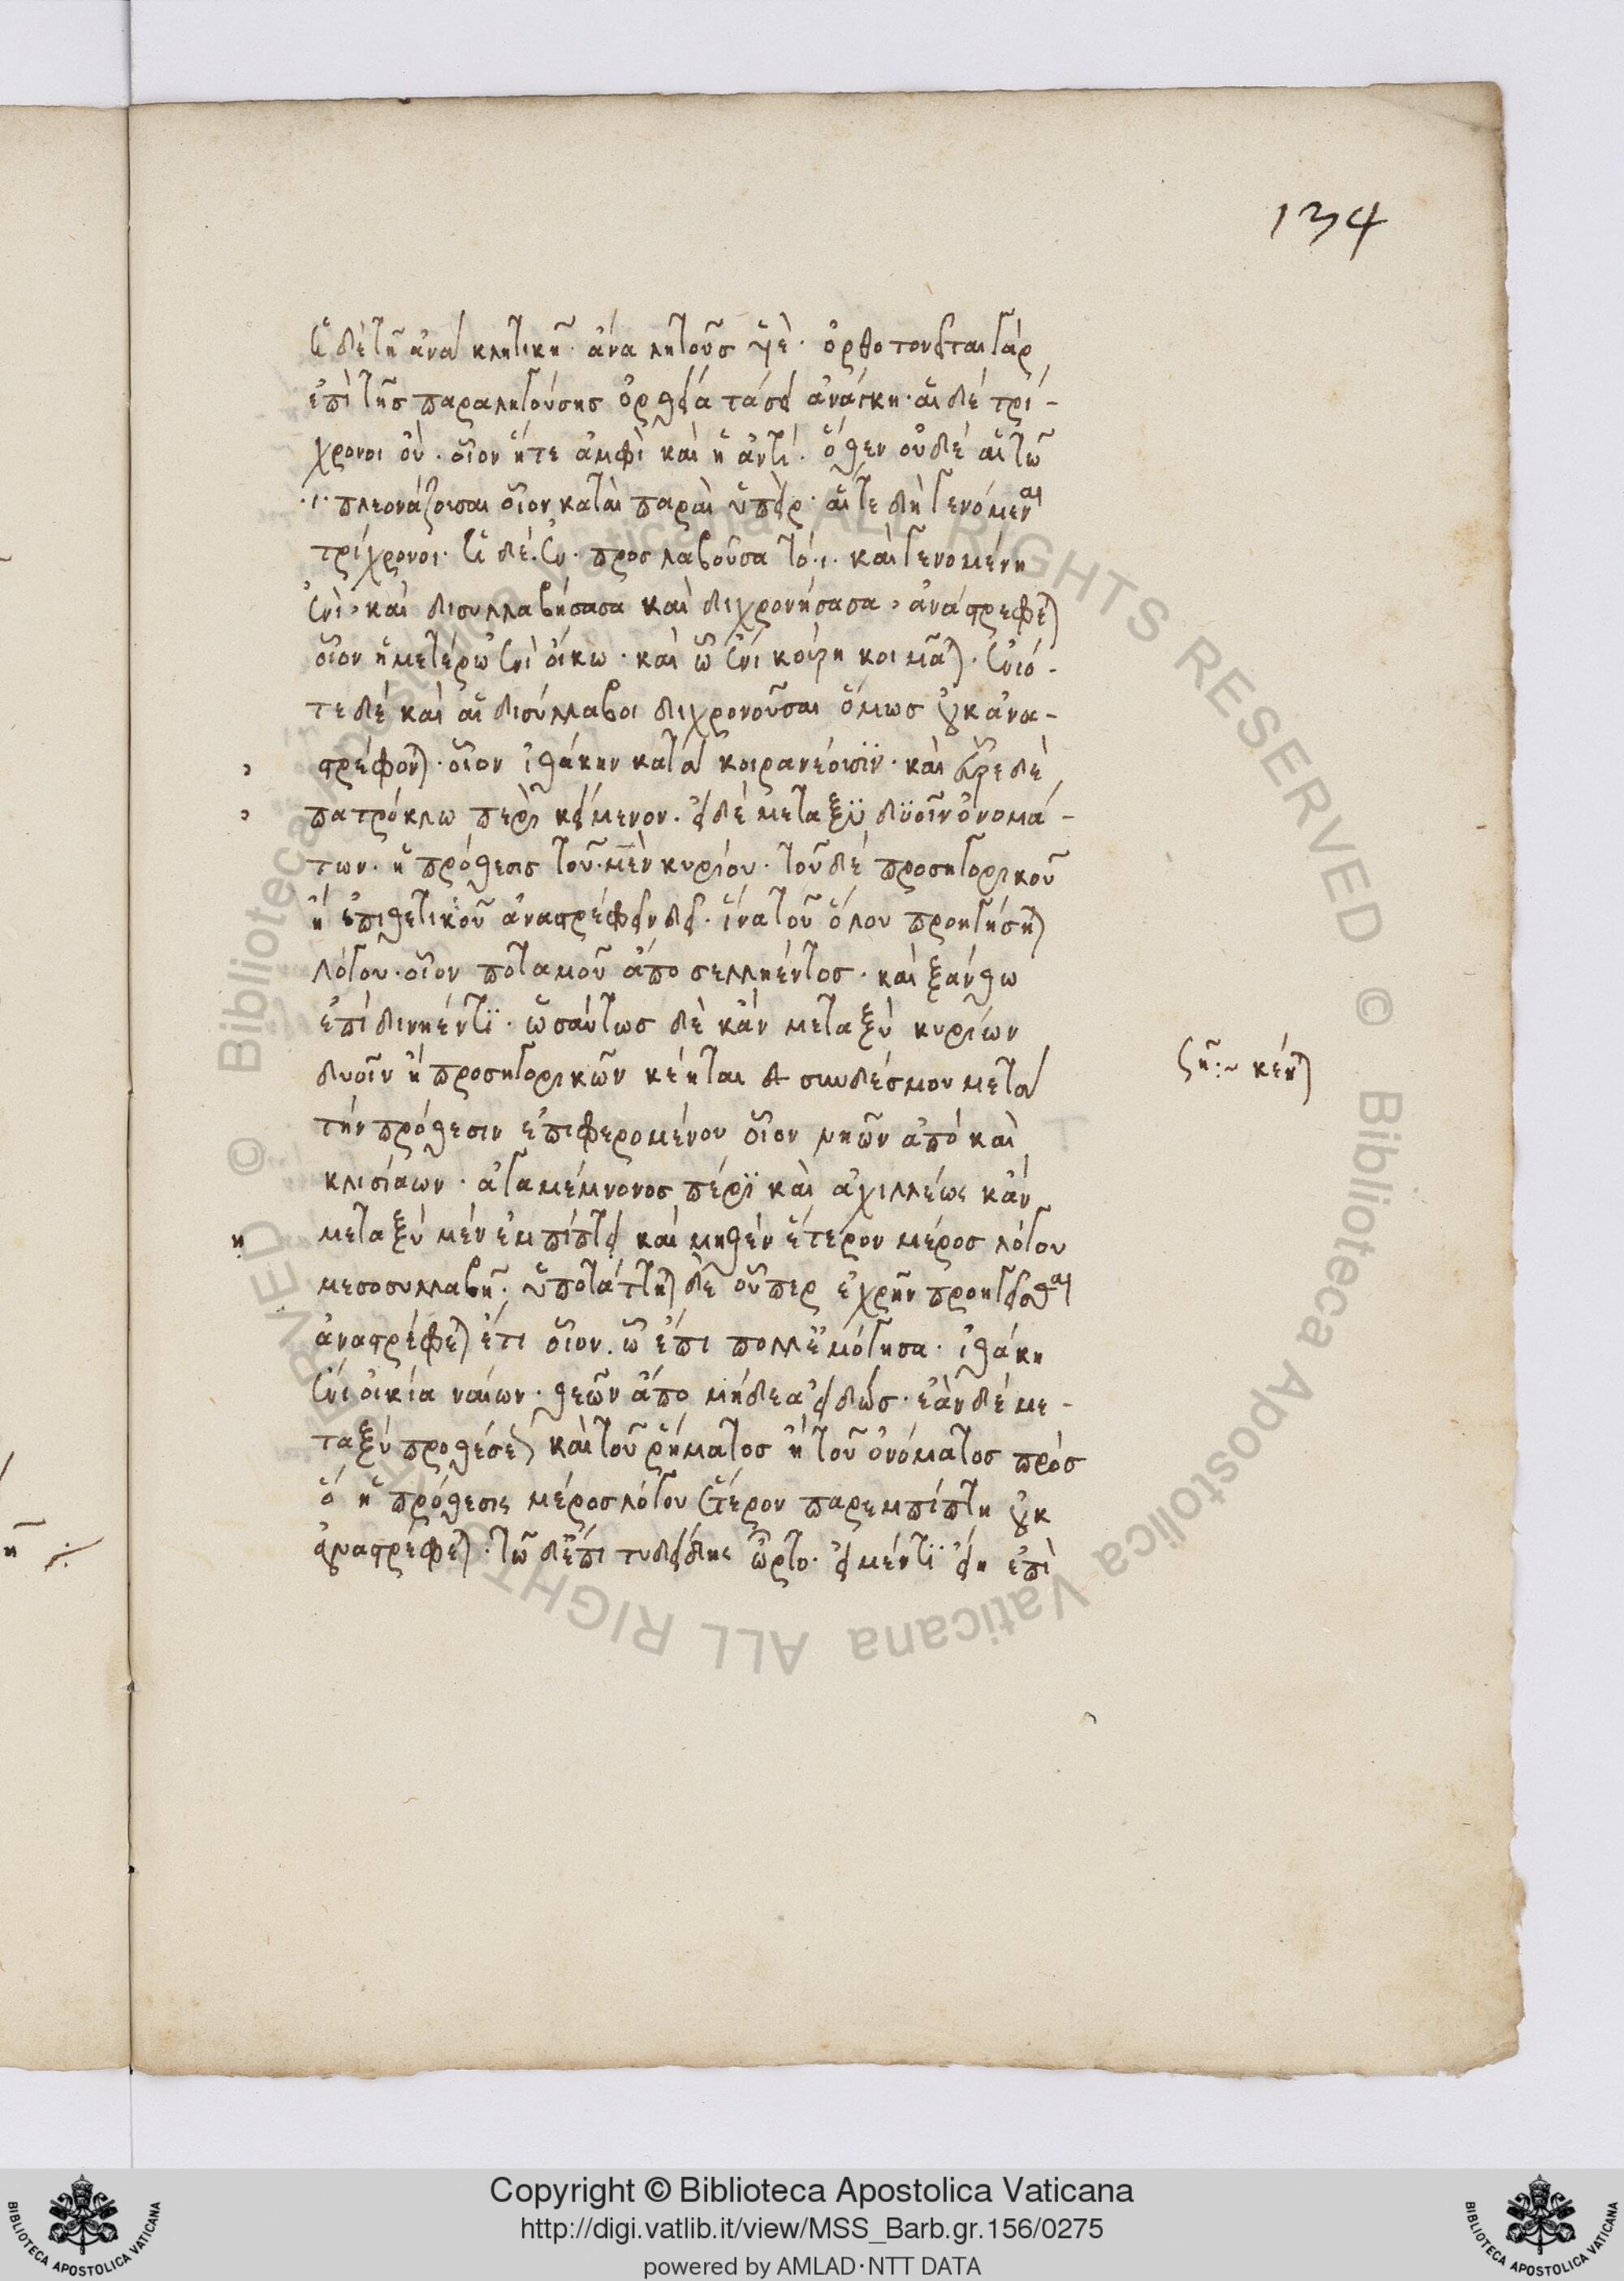 134
εἰ δὲ τῆ ἀνακλητικῆ. ἀναλητοῦς γὲ. ὀρθοτονεῖται γάρ
ἐπὶ τῆς παραληγούσης ὀρθὰ τάσει ἀνάγκη. αἱ δὲ τρί-
χρονοι οὐ. οἷον ἥτε ἀμφὶ καὶ ἡ ἀντί. ὅθεν οὐδὲ αἱ τῶ
.ι. πλεονάζουσαι οἷον καταὶ παραὶ ὑπεὶρ. αἵτε δὴ γενόμεναι
τρίχρονοι. εἰ δέ. ἐν. προσλαβοῦσα τό .ι. καὶ γενομένη
ἐνὶ, καὶ δισυλλαβήσασα καὶ διχρονήσασα, ἀναστρέφεται
οἷον ἡμετέρω ἐνὶ οἴκω. καὶ ὧ ἔνι κούρη κοιμᾶται. ἐνιό-
τε δὲ καὶ αἱ δισύλλαβοι διχρονοῦσαι ὅμως οὐκ ἀνα-
στρέφονται. οἷον ἰθάκην κατὰ κοιρανέουσϊν. καὶ εὗρε δὲ
πατρόκλω περὶ κείμενον. εἰ δὲ μεταξὺ δυοῖν ὀνομά-
των. ἡ πρόθεσις τοῦ. μὲν κυρίου. τοῦ δὲ προσηγορικοῦ
ἢ ἐπιθετικοῦ ἀναστρέφειν δεῖ. ἵνα τοῦ ὅλου προηγήσηται
λόγου. οἷον ποταμοῦ ἄπο σελλήεντος. καὶ ξάνθω
ἐπὶ δινήεντϊ. ὡσαύτως δὲ κἂν μεταξὺ κυρίων
δυοῖν ἢ προσηγορικῶν κέηται διὰ συνδέσμου μετὰ
τὴν πρόθεσιν ἐπιφερομένου οἷον νηῶν ἀπὸ καὶ
κλισιάων. ἀγαμέμνονος πέρϊ καὶ ἀχιλλέως κἂν
μεταξὺ μὲν ἐμπίπτει καὶ μηθὲν ἕτερον μέρος λόγου
η
μεσοσυλλαβῆ. ὑποτάττηται δὲ οὗπερ ἐχρῆν προηγεῖσθαι
ἀναστρέφεται ἔτι οἷον. ὧ ἔπι πολλ' ἐμόγησα. ἰθάκη
ἔνι οἰκία ναίων. θεῶν ἄπο μήδεα εἰδώς. ἐὰν δὲ με-
ταξὺ προθέσεως καὶ τοῦ ῥήματος ἢ τοῦ ὀνόματος πρὸς
ὃ ἡ πρόθεσις μέρος λόγου ἕτερον παρεμπίπτη οὐκ
ἀναστρέφεται. τῶ δ' ἐπὶ τυδείδης ὦρτο. εἰ μέντϊ εἴη ἐπὶ
ζη:~ κέηται
Copyright © Biblioteca Apostolica Vaticana
http://digi.vatlib.it/view/MSS_Barb.gr.156/0275
powered by AMLAD·NTT DATA